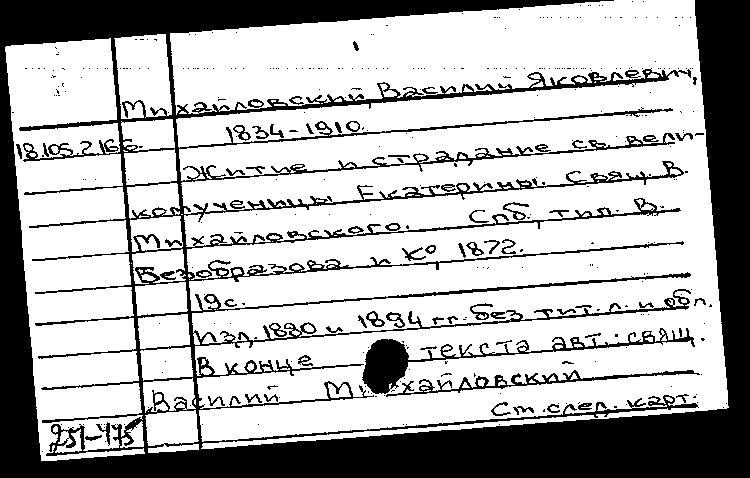 Михайловский, Василий Яковлевич,
18.105.2.166. 1834-1910.
Житие и страдание св. вели-
комученицы Екатерины. Свящ. В.
Михайловского. Спб., тип. В.
Безобразова и К°, 1872.
19 с.
Изд. 1890 и 1894 гг. без тит. л. и обл.
В конце текста авт.: свящ.
Василий Михайловский
Ст. след. карт.
251-475